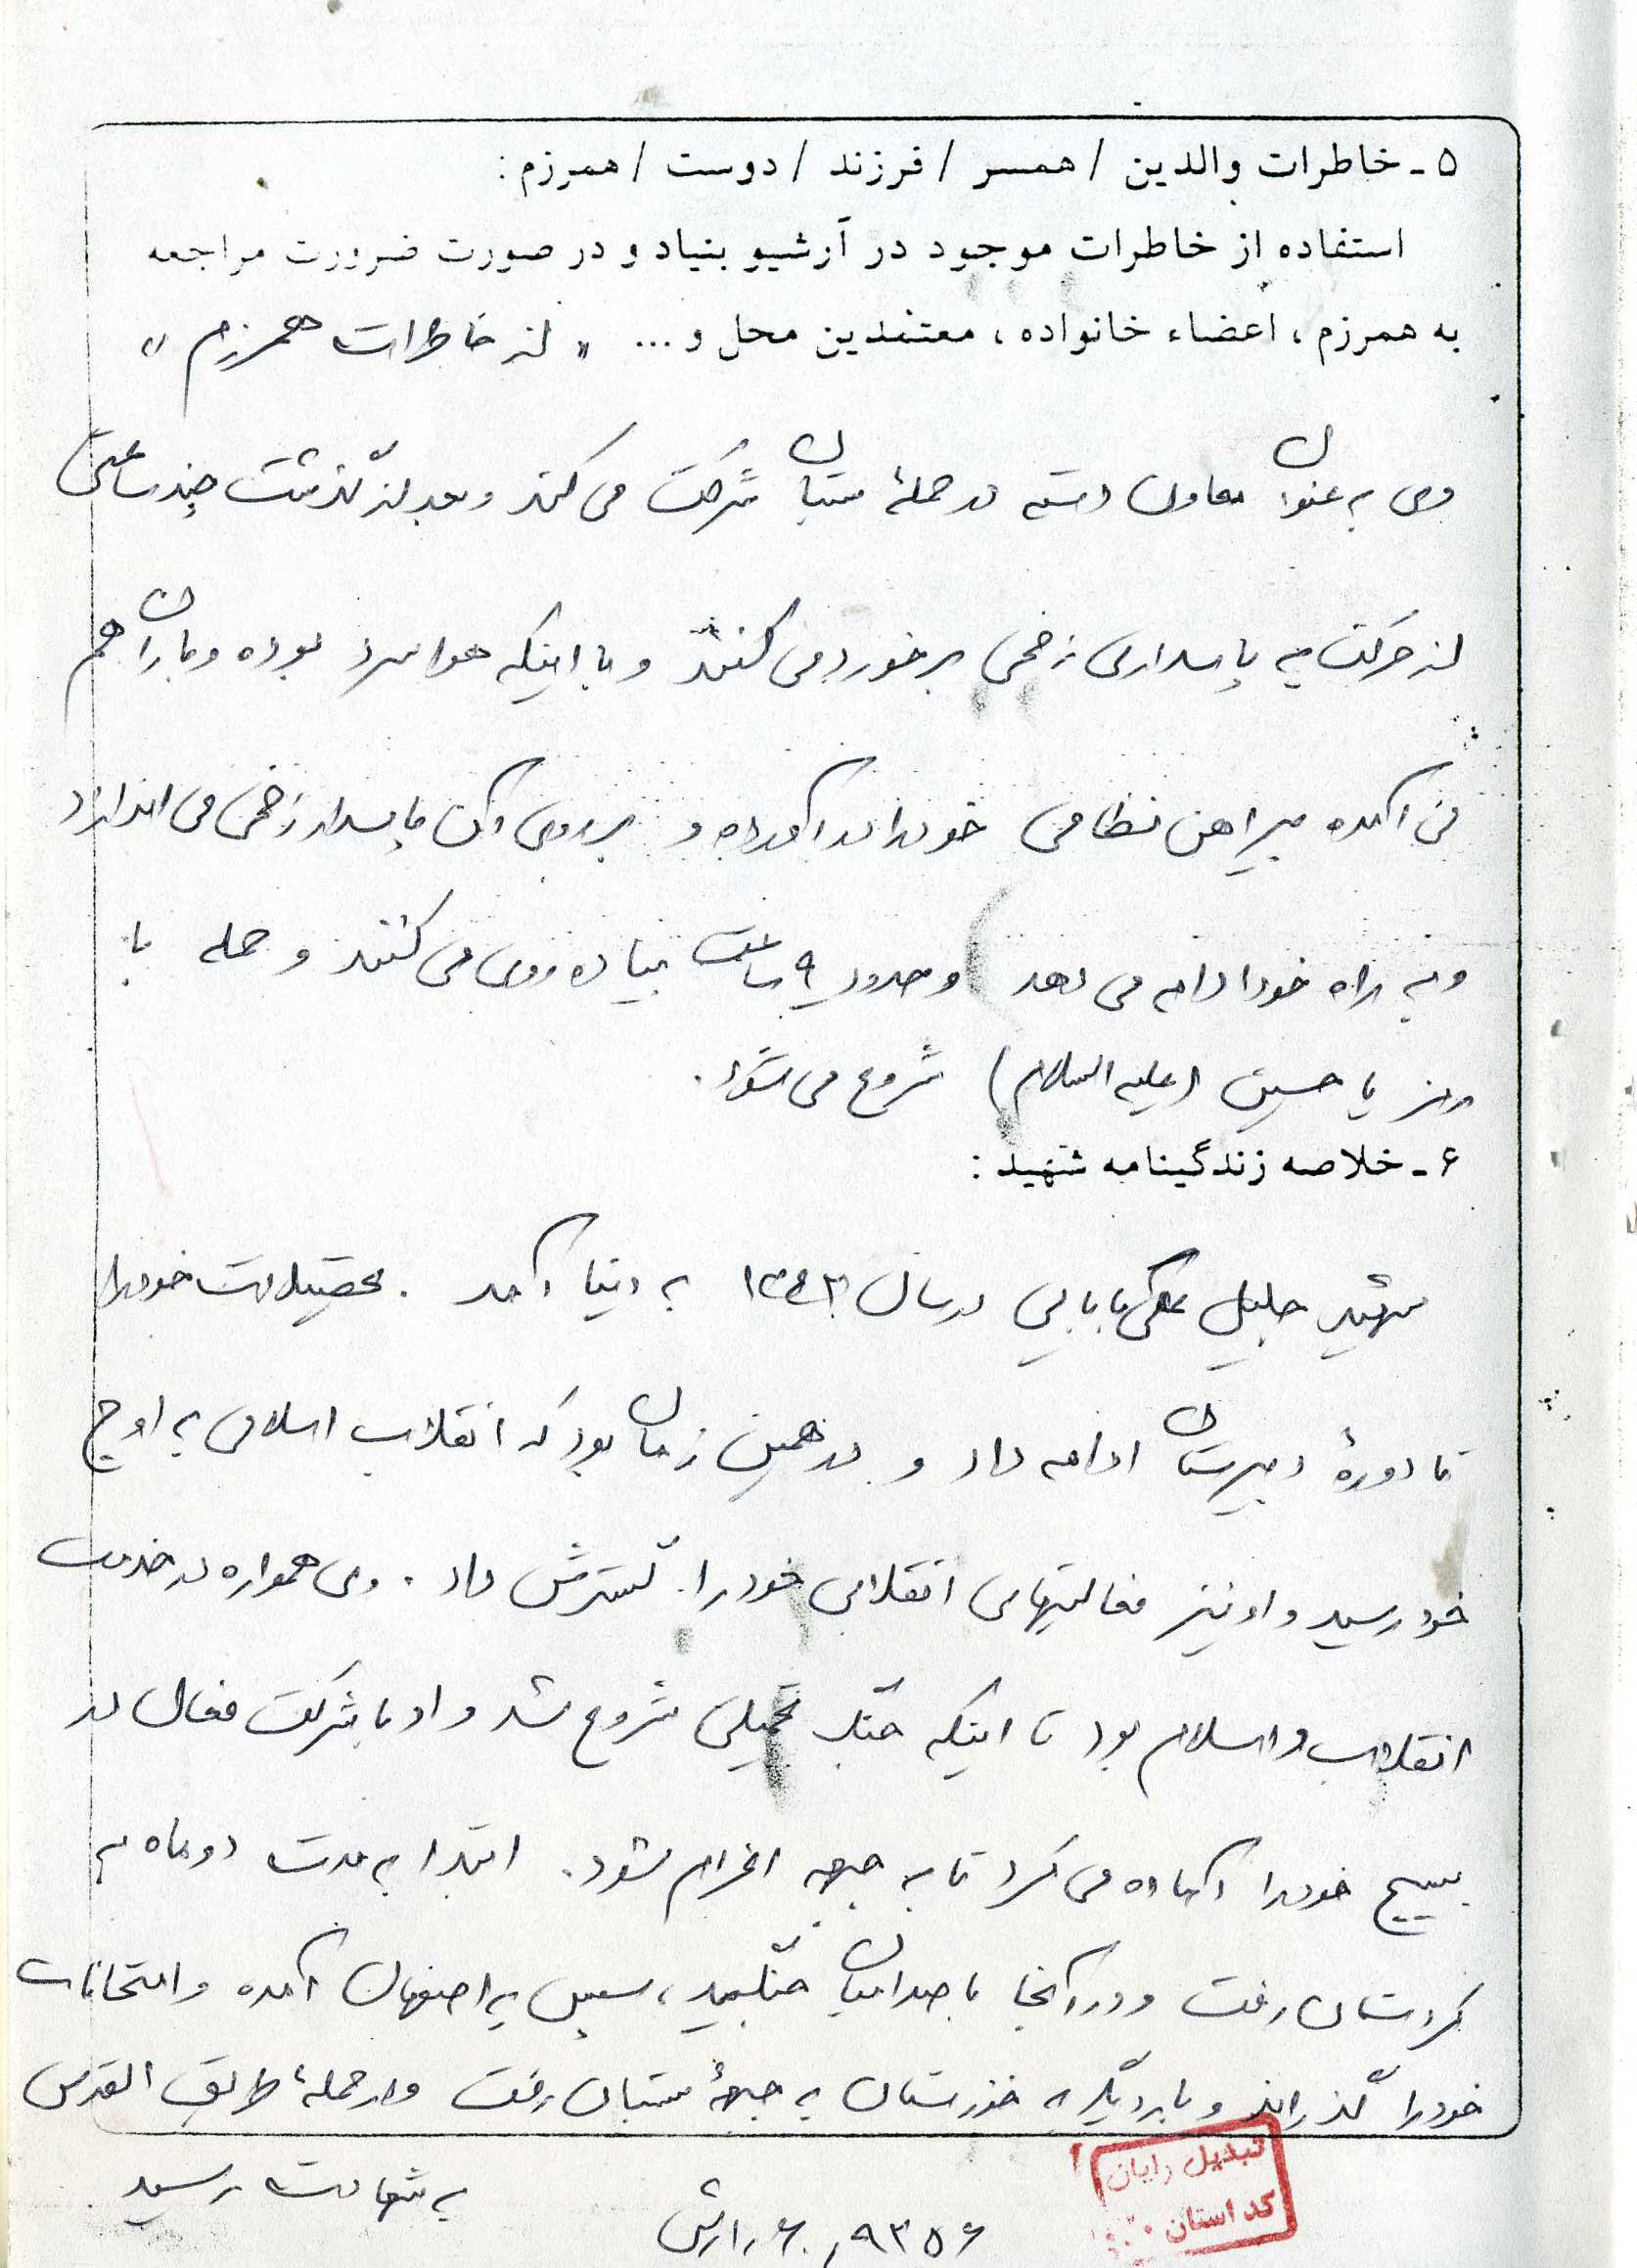 ۵ـ خاطرات والدین / همسر / فرزند / دوست / همرزم :
استفاده از خاطرات موجود در آرشیو بنیاد و در صورت ضرورت مراجعه
به همرزم ، اعضاء خانواده ، معتمدین محل و ... « از خاطرات همرزم »
وی به عنوان معاون دسته در حملهٔ بستان شرکت می کند و بعد از گذشت چند ساعتی
از حرکت به پاسداری زخمی برخورد می کنند و با اینکه هوا سرد بوده و باران هم
می آمده پیراهن نظامی خود را در آورده و بر روی آن پاسدار زخمی می اندازد
و به راه خود ادامه می دهد و حدود ۹ ساعت پیاده روی می کنند و حمله با
رمز یا حسین (علیه السلام) شروع می شود .
۶ـ خلاصه زندگینامه شهید :
شهید جلیل بابایی در سال ۱۳۴۳ به دنیا آمد . تحصیلات خود را
تا دورهٔ دبیرستان ادامه داد و در همین زمان بود که انقلاب اسلامی به اوج
خود رسید و او نیز فعالیتهای انقلابی خود را گسترش داد . وی همواره در خدمت
انقلاب و اسلام بود تا اینکه جنگ تحمیلی شروع شد و او با شرکت فعال در
بسیج خود را آماده می کرد تا به جبهه اعزام شود . ابتدا به مدت دو ماه به
کردستان رفت و در آنجا با ضد انقلابیان جنگید ، سپس به اصفهان آمده و امتحانات
خود را گذراند و بار دیگر به خوزستان به جبههٔ بستان رفت و در حملهٔ طریق القدس
به شهادت رسید .
تبدیل رایان
کد استان
۹۳۵۶